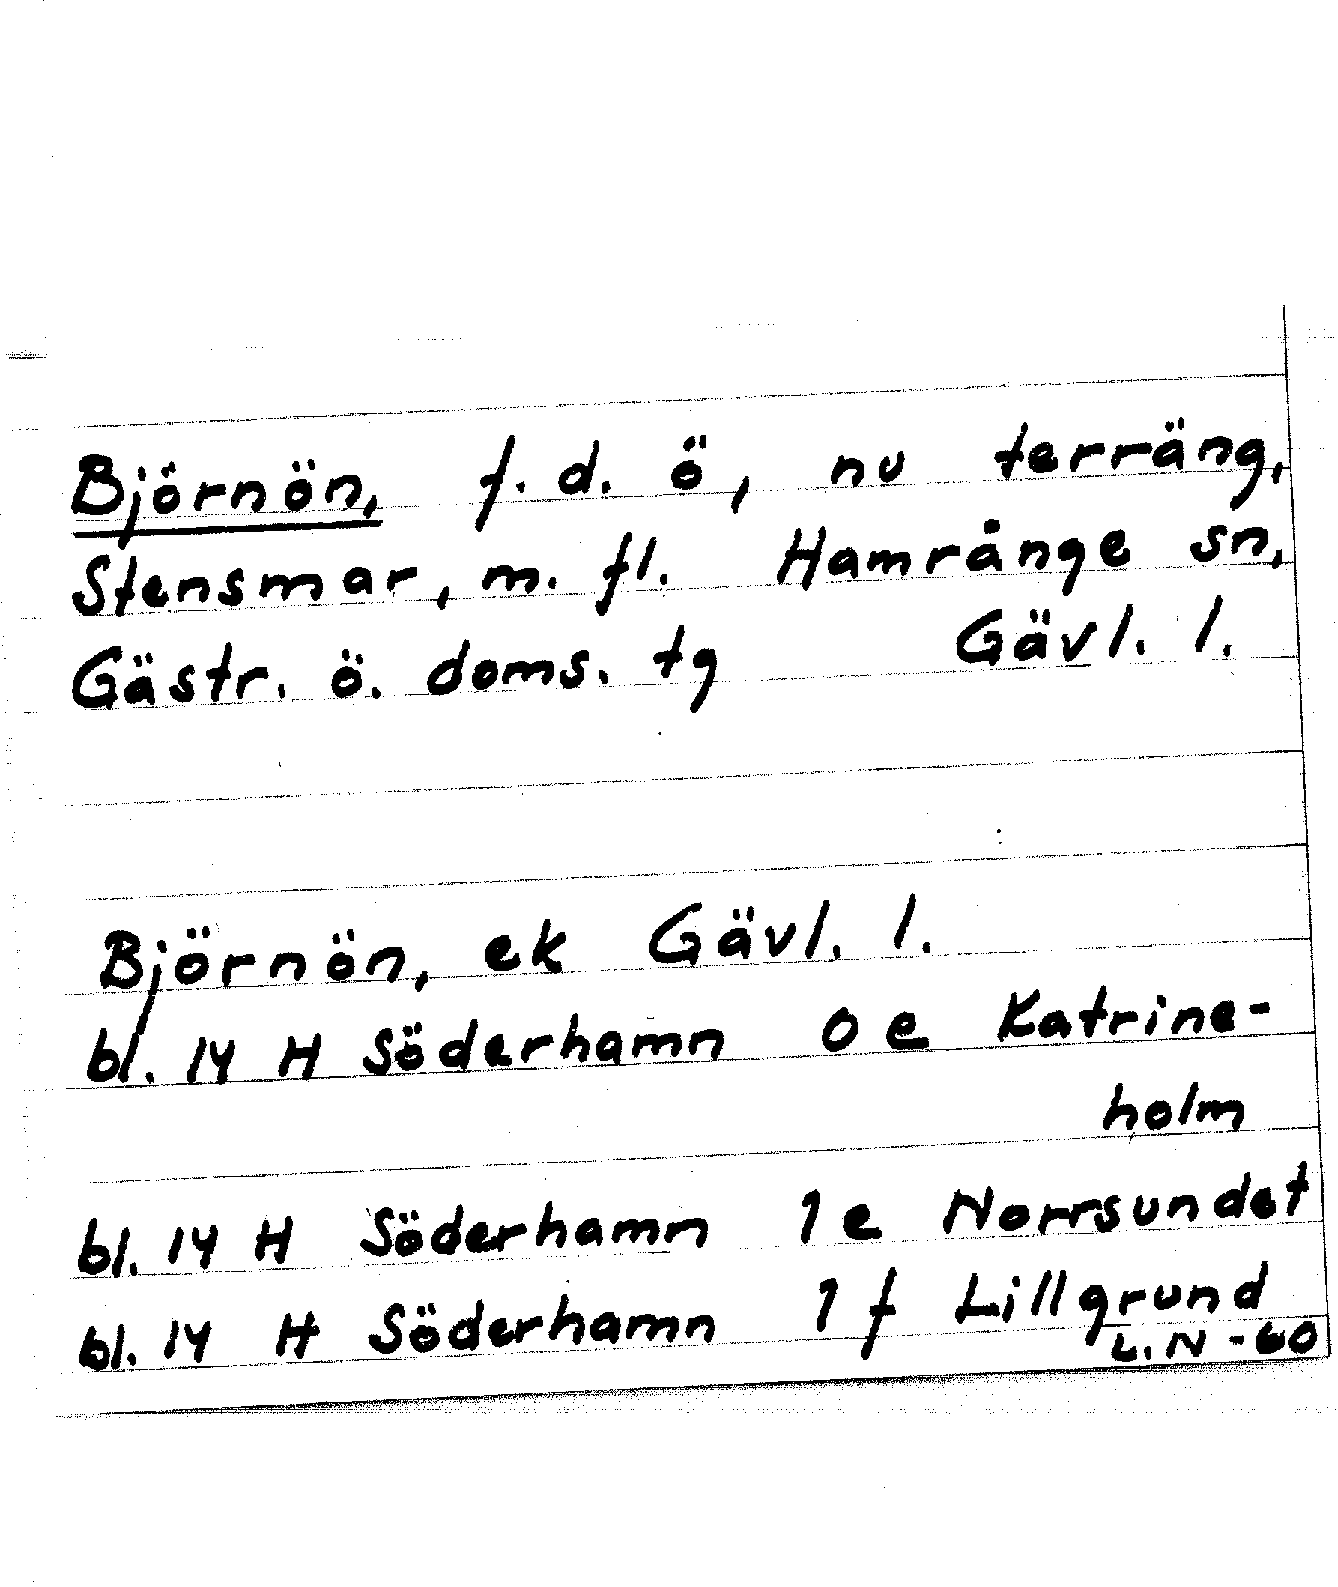 Björnön, f. d. ö, nu terräng,
Stensmar, m. fl. Hamrånge sn,
Gästr. ö. doms. tg Gävl. l.
Björnön, ek Gävl. l.
bl. 14 H Söderhamn 0 e Katrine-
holm
bl. 14 H Söderhamn 1 e Norrsundet
bl. 14 H Söderhamn 1 f Lillgrund
L. N - 60